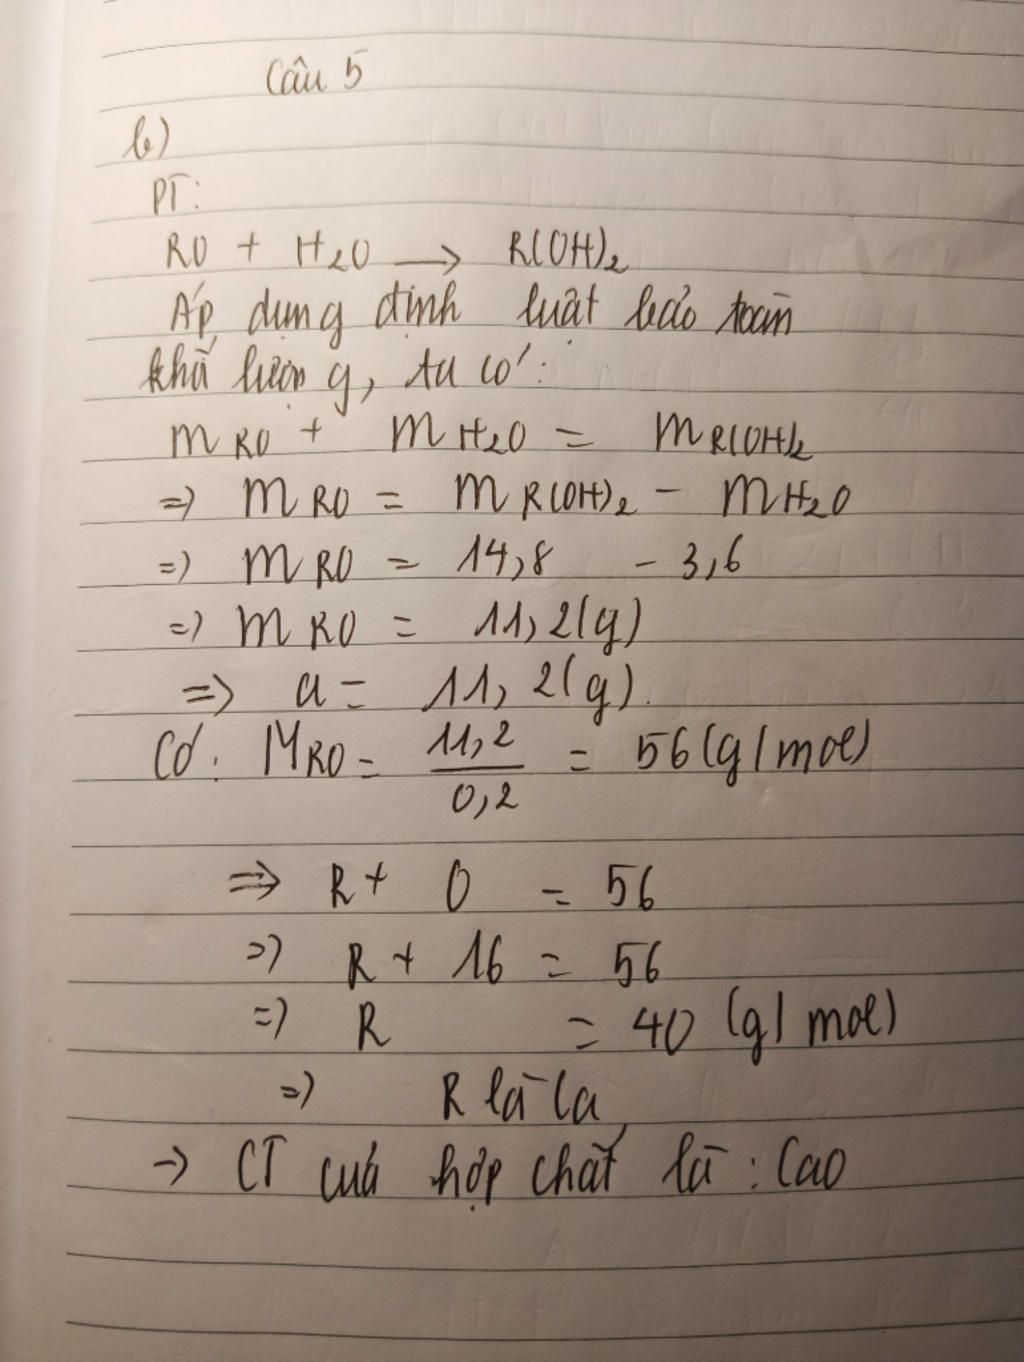 Câu 5
b)
PT:
RO + H₂O ⟶ R(OH)₂
Áp dụng định luật bảo toàn
khố lượng, ta có:
m RO + m H₂O = m R(OH)₂
=> m RO = m R(OH)₂ - m H₂O
=> m RO = 14,8 - 3,6
=> m RO = 11,2(g)
=> a = 11,2(g).
Có: M RO = 11,2 / 0,2 = 56(g/mol)
=> R + O = 56
=> R + 16 = 56
=> R = 40 (g/mol)
=> R là Ca
→ CT của hợp chất là: CaO